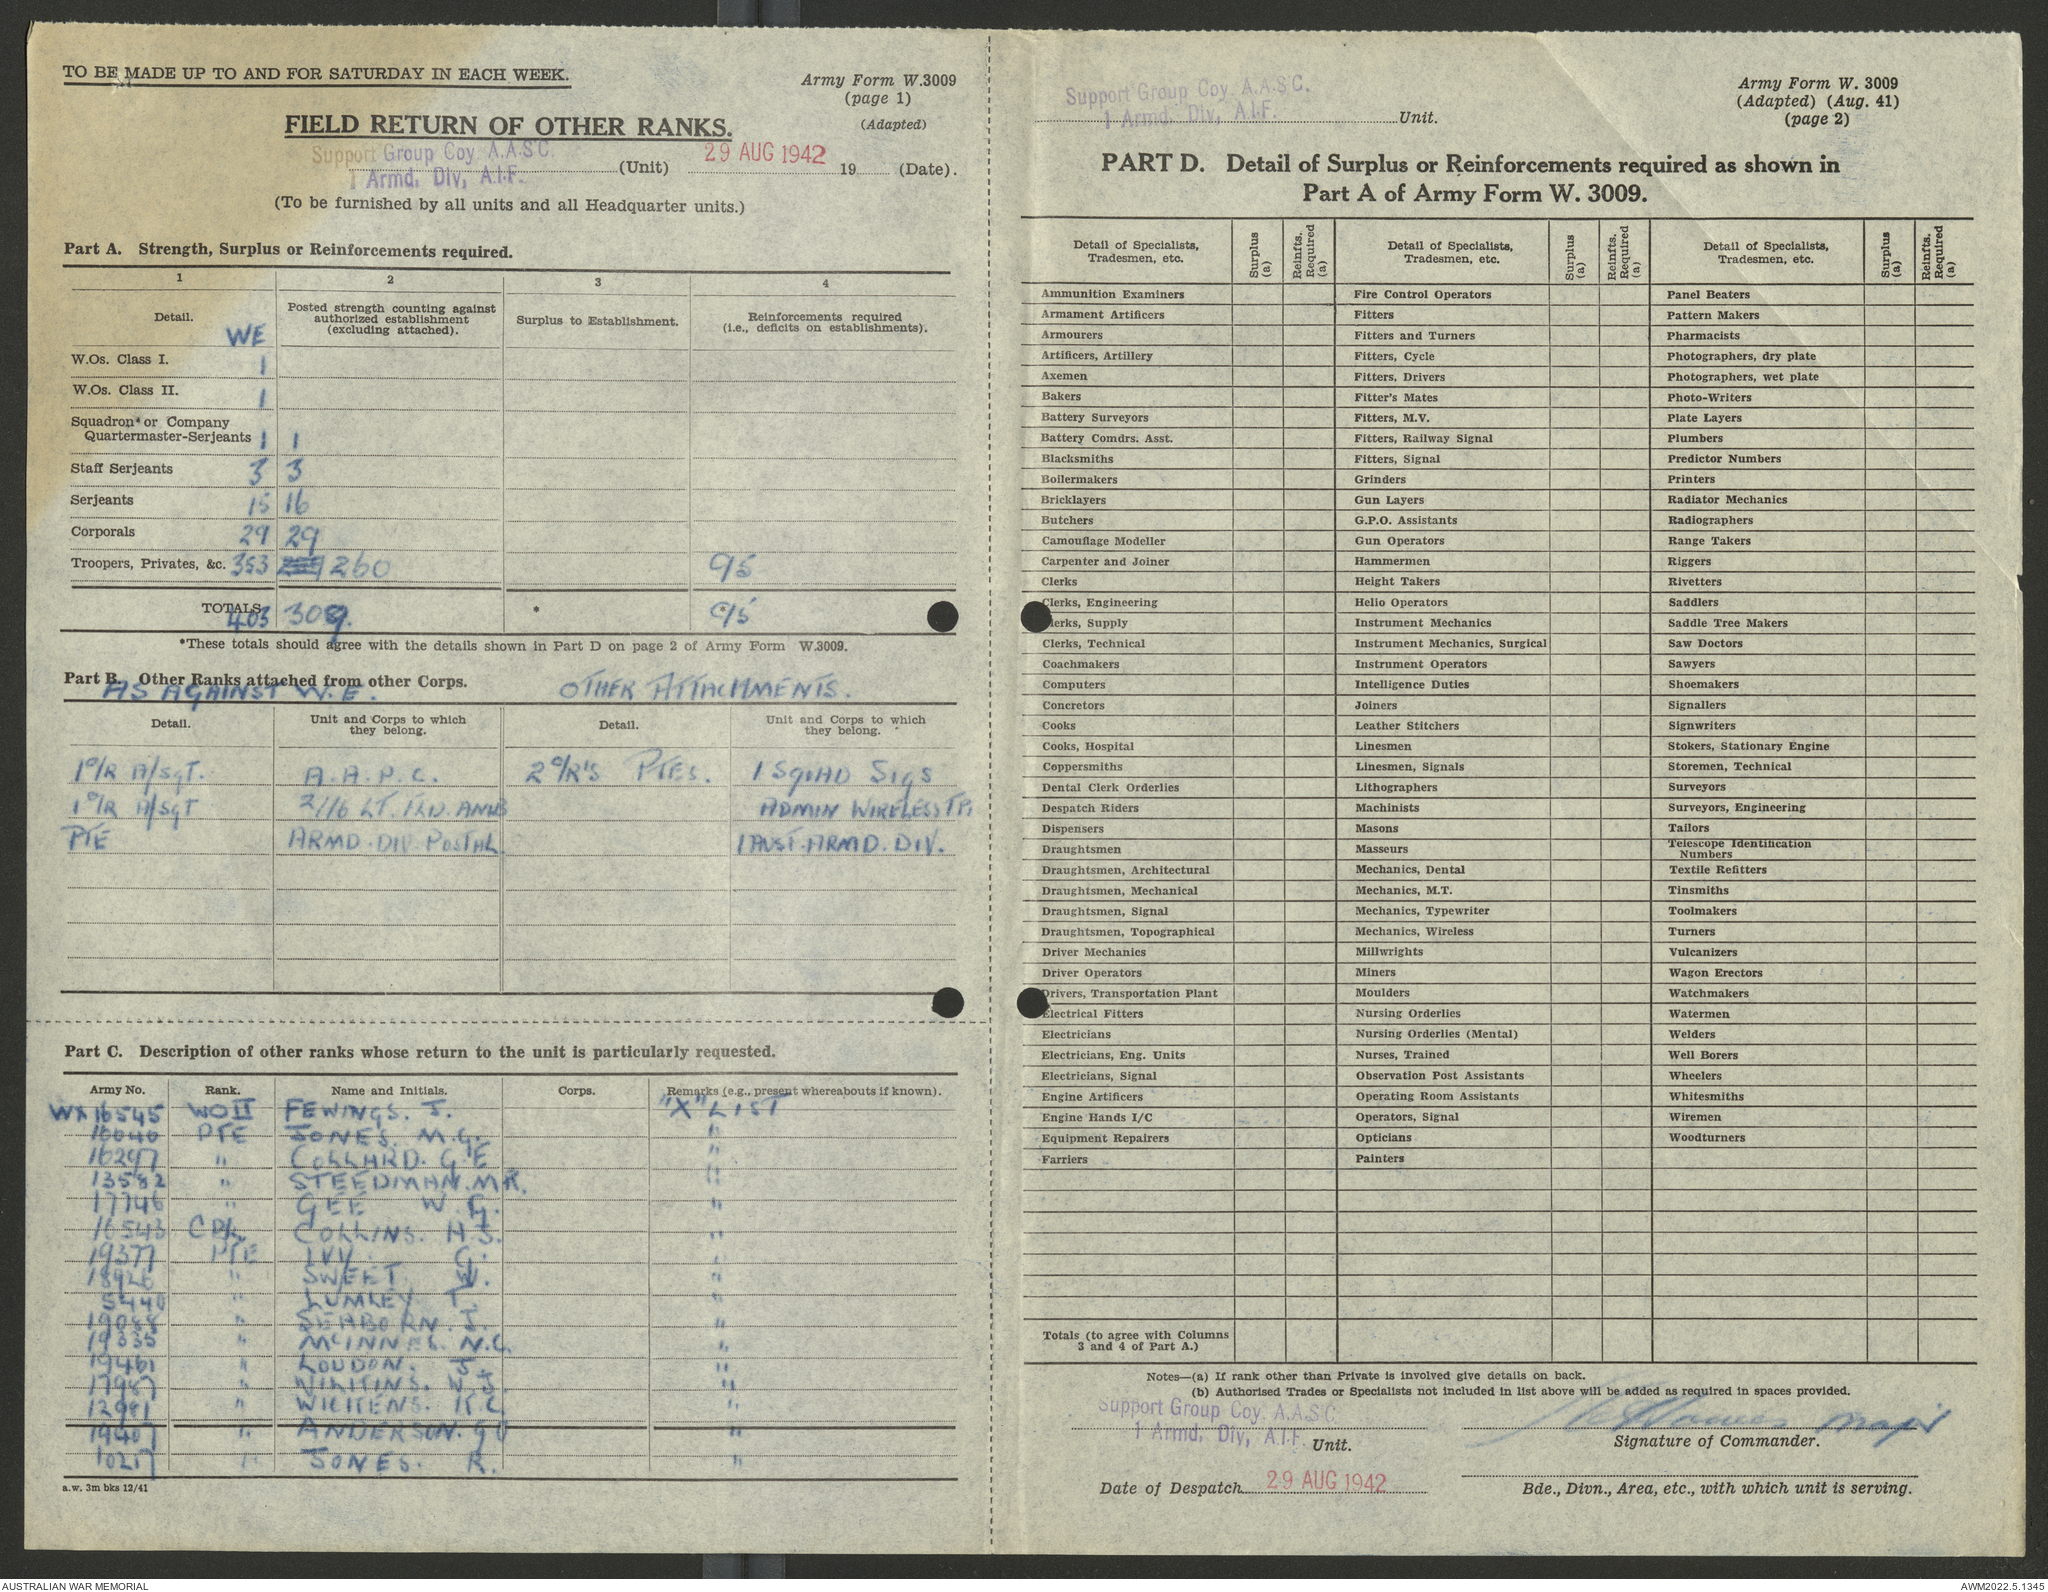 TO BE MADE UP TO AND FOR SATURDAY IN EACH WEEK.
Army Form W.3009
(page 1)
(Adapted)
FIELD RETURN OF OTHER RANKS.
Support Group Coy A.A.S.C.
1 Armd. Div, A.I.F.
(Unit) 29 AUG 1942 19 (Date).
(To be furnished by all units and all Headquarter units.)
Part A. Strength, Surplus or Reinforcements required.
1 2 3 4
Detail. WE
Posted strength counting against authorized establishment (excluding attached).
Surplus to Establishment.
Reinforcements required (i.e., deficits on establishments).
W.Os. Class I. 1
W.Os. Class II. 1
Squadron* or Company
Quartermaster-Serjeants 1 1
Staff Serjeants 3 3
Serjeants 15 16
Corporals 29 29
Troopers, Privates, &c. 353 260 95
TOTALS 403 309. * * 95
*These totals should agree with the details shown in Part D on page 2 of Army Form W.3009.
Part B. Other Ranks attached from other Corps.
AS AGAINST W.E. OTHER ATTACHMENTS.
Detail. Unit and Corps to which they belong. Detail. Unit and Corps to which they belong.
1 O/R A/SGT. A.A.P.C. 2 O/R'S PTES. 1 SQUAD SIGS
1 O/R A/SGT 2/16 LT. ADMIN WIRELESS TP.
PTE ARMD. DIV. POSTAL. 1 AUST. ARMD. DIV.
Part C. Description of other ranks whose return to the unit is particularly requested.
Army No. Rank. Name and Initials. Corps. Remarks (e.g., present whereabouts if known).
WX16545 WO II FEWINGS. J. "X" LIST
10040 PTE JONES. M.G. "
16297 " COLLARD. G.E "
13582 " STEEDMAN. M R. "
17746 " GEE W. G. "
16543 CPL COLLINS. H.J. "
19377 PTE IVY. G. "
18926 " SWEET W. "
5440 " LUMLEY T. "
19088 " SEABORN. J. "
19335 " McINNES. N.C. "
19461 " LOUDON. J. "
17987 " WILKINS. W.J. "
12981 " WICKENS. K.C. "
19407 " ANDERSON. G "
10217 " JONES. R. "
a.w. 3m bks 12/41
Support Group Coy. A.A.S.C.
1 Armd. Div, A.I.F. Unit.
Army Form W. 3009
(Adapted) (Aug. 41)
(page 2)
PART D. Detail of Surplus or Reinforcements required as shown in
Part A of Army Form W. 3009.
Detail of Specialists, Tradesmen, etc. Surplus (a) Reinfts. Required (a) Detail of Specialists, Tradesmen, etc. Surplus (a) Reinfts. Required (a) Detail of Specialists, Tradesmen, etc. Surplus (a) Reinfts. Required (a)
Ammunition Examiners Fire Control Operators Panel Beaters
Armament Artificers Fitters Pattern Makers
Armourers Fitters and Turners Pharmacists
Artificers, Artillery Fitters, Cycle Photographers, dry plate
Axemen Fitters, Drivers Photographers, wet plate
Bakers Fitter's Mates Photo-Writers
Battery Surveyors Fitters, M.V. Plate Layers
Battery Comdrs. Asst. Fitters, Railway Signal Plumbers
Blacksmiths Fitters, Signal Predictor Numbers
Boilermakers Grinders Printers
Bricklayers Gun Layers Radiator Mechanics
Butchers G.P.O. Assistants Radiographers
Camouflage Modeller Gun Operators Range Takers
Carpenter and Joiner Hammermen Riggers
Clerks Height Takers Rivetters
Clerks, Engineering Helio Operators Saddlers
Clerks, Supply Instrument Mechanics Saddle Tree Makers
Clerks, Technical Instrument Mechanics, Surgical Saw Doctors
Coachmakers Instrument Operators Sawyers
Computers Intelligence Duties Shoemakers
Concretors Joiners Signallers
Cooks Leather Stitchers Signwriters
Cooks, Hospital Linesmen Stokers, Stationary Engine
Coppersmiths Linesmen, Signals Storemen, Technical
Dental Clerk Orderlies Lithographers Surveyors
Despatch Riders Machinists Surveyors, Engineering
Dispensers Masons Tailors
Draughtsmen Masseurs Telescope Identification Numbers
Draughtsmen, Architectural Mechanics, Dental Textile Refitters
Draughtsmen, Mechanical Mechanics, M.T. Tinsmiths
Draughtsmen, Signal Mechanics, Typewriter Toolmakers
Draughtsmen, Topographical Mechanics, Wireless Turners
Driver Mechanics Millwrights Vulcanizers
Driver Operators Miners Wagon Erectors
Drivers, Transportation Plant Moulders Watchmakers
Electrical Fitters Nursing Orderlies Watermen
Electricians Nursing Orderlies (Mental) Welders
Electricians, Eng. Units Nurses, Trained Well Borers
Electricians, Signal Observation Post Assistants Wheelers
Engine Artificers Operating Room Assistants Whitesmiths
Engine Hands I/C Operators, Signal Wiremen
Equipment Repairers Opticians Woodturners
Farriers Painters
Totals (to agree with Columns
3 and 4 of Part A.)
Notes—(a) If rank other than Private is involved give details on back.
(b) Authorised Trades or Specialists not included in list above will be added as required in spaces provided.
Support Group Coy. A.A.S.C.
1 Armd. Div, A.I.F. Unit.
Major
Signature of Commander.
Date of Despatch 29 AUG 1942
Bde., Divn., Area, etc., with which unit is serving.
AUSTRALIAN WAR MEMORIAL
AWM2022.5.1345